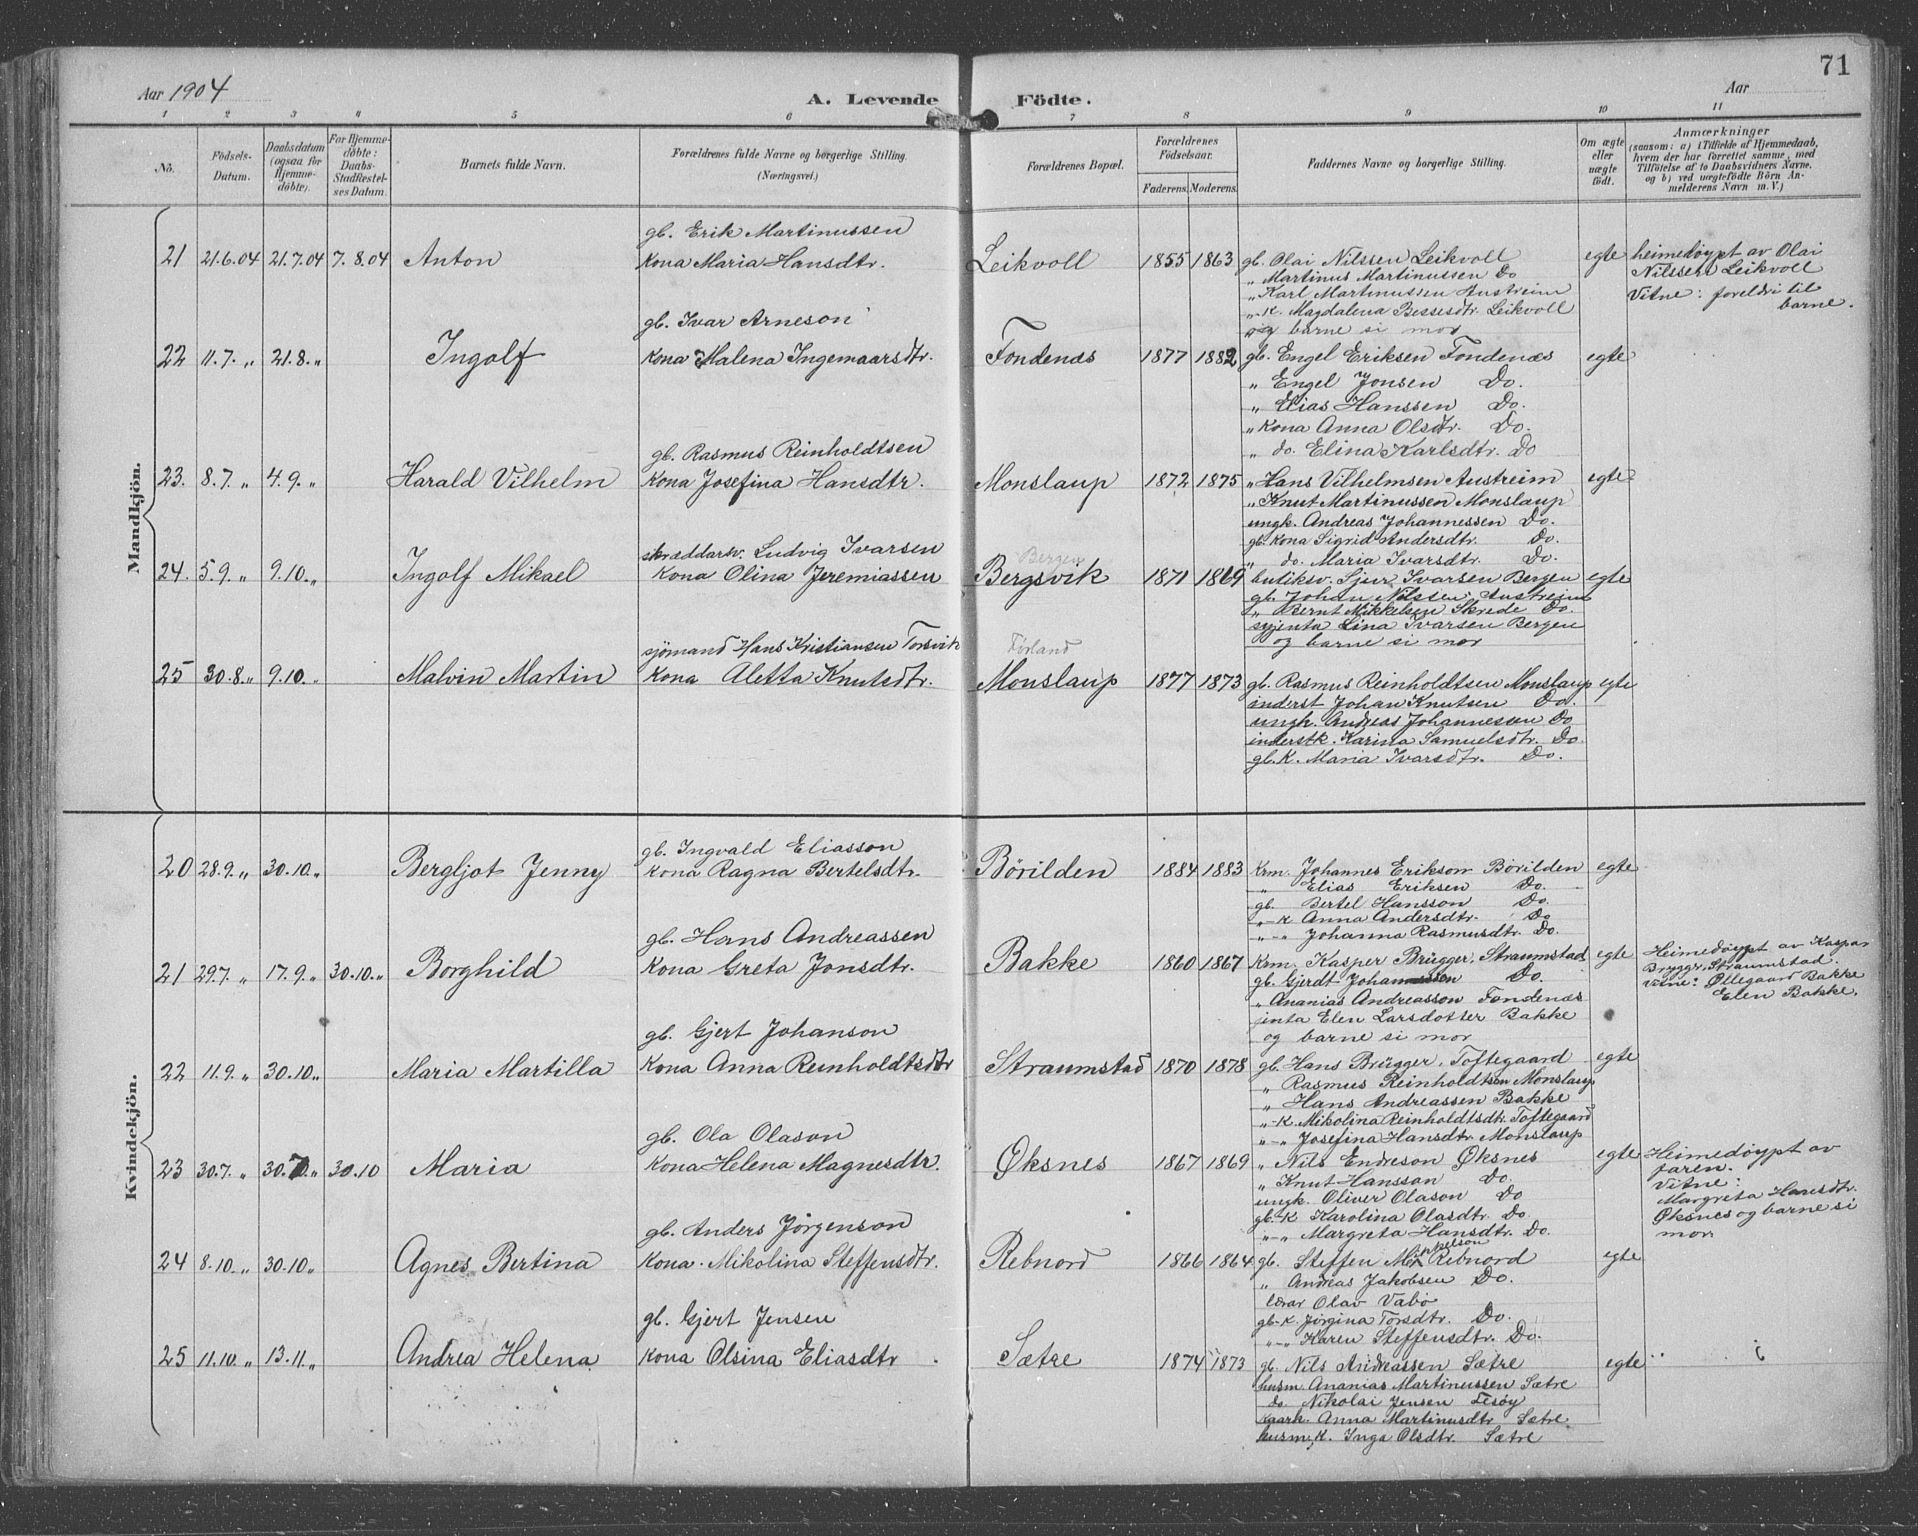 71
Aar 1904
A. Levende Födte.
Aar
1 2 3 4 5 6 7 8 9 10 11
No.
Födsels-Datum.
Daabsdatum (ogsaa for Hjemmedøbte).
For Hjemmedøbte: Daabs-Stadfæstelses Datum.
Barnets fulde Navn.
Forældrenes fulde Navne og borgerlige Stilling. (Næringsvei.)
Forældrenes Bopæl.
Forældrenes Födselsaar.
Faderens. Moderens.
Faddernes Navne og borgerlige Stilling.
Om ægte eller uægte födt.
Anmærkninger
(saasom: a) i Tilfælde af Hjemmedaab, hvem der har forrettet samme, med Tilföielse af to Daabsvidners Navne, og b) ved uægtefödte Börn Anmelderens Navn m. V.)
Mandkjön.
gb. Erik Martinussen
21 21.6.04 21.7.04 7.8.04 Anton Kona Maria Hansdtr. Leikvoll 1855 1863 gb. Olai Nilssen Leikvoll egte heimedøypt av Olai
„ Martinus Martinussen Do Nilssen Leikvoll
„ Karl Martinussen Austreim Vitne: foreldri til
„-K. Magdalena Bessesdtr Leikvoll barne.
og barne si mor
gb. Ivar Arneson
22 11.7. „ 21.8. „ Ingolf Kona Malena Ingemaarsdtr. Fondenæs 1877 1882 gb. Engel Eriksen Fondenæs egte
„ Engel Jonsen Do.
„ Elias Hanssen Do.
„ Kona Anna Olsdtr. Do.
„ do. Elina Karlsdtr. Do
gb. Rasmus Reinholdtsen
23. 8.7. „ 4.9. „ Harald Vilhelm Kona Josefina Hansdtr. Monslaup 1872 1875 „ Hans Vilhelmsen Austreim egte
„ Knut Martinussen Monslaup
ungk. Andreas Johannessen Do.
gb. Kona Sigrid Andersdtr. Do.
„ do. Maria Ivarsdtr. Do.
skræddarsv. Ludvig Ivarsen Bergen
24. 5.9. „ 9.10. „ Ingolf Mikael Kona Olina Jeremiassen Bergsvik 1871 1869 butiksv. Sjur Ivarsen Bergen egte
gb. Johan Nilssen, Austreim
„ Bernt Mikkelsen Skrede Do.
syjenta Lina Ivarsen Bergen
og barne si mor
sjömand Hans Kristiansen Torsvik Førland
25 30.8. „ 9.10. „ Malvin Martin Kona Aletta Knutsdtr. Monslaup 1877 1873 gb. Rasmus Reinholdtsen Monslaup egte
inderst Johan Knutsen Do.
ungk. Andreas Johannessen Do
inderstk. Karina Samuelsdtr. Do.
gb. K. Maria Ivarsdtr. Do.
Kvindekjön.
gb. Ingvald Eliasson
20 28.9. „ 30.10. „ Bergljot Jenny Kona Ragna Bertelsdtr. Börilden 1884 1883 Krm. Johannes Erikson Börilden egte
„ Elias Eriksen Do.
gb. Bertel Hansson Do.
„-K Anna Andersdtr. Do
„-„ Johanna Rasmusdtr. Do.
gb. Hans Andreassen
21 29.7. „ 17.9. „ 30.10. „ Borghild Kona Greta Jonsdtr. Bakke 1860 1867 Krm. Kasper Brügger, Straumstad egte Heimedøypt av Kaspar
gb. Gjerdt Johannessen Do. Brygger, Straumstad.
„ Ananias Andreasson Fondenæs Vitne: Øllegaard Bakke
jenta Elen Larsdotter Bakke Elen Bakke.
og barne si mor
gb. Gjert Johanson
22 11.9. „ 30.10. „ Maria Martilla Kona Anna Reinholdtsdtr Straumstad 1870 1878 gb. Hans Brügger, Toftegaard egte
„ Rasmus Reinholdtsen Monslaup
„ Hans Andreassen Bakke
„-K. Mikolina Reinholdtsdtr. Toftegaard
„-„ Josefina Hansdtr Monslaup
gb. Ola Olason
23 30.7. „ 30.7. „ 30.10 Maria Kona Helena Magnesdtr. Øksnes 1867 1869 „ Nils Endreson Øksnes egte Heimedøypt av
„ Knut Hansson Do. faren.
ungk. Oliver Olason Do Vitne:
gb-K Karolina Olasdtr. Do. Margreta Hansdtr.
„-„ Margreta Hansdtr. Do. Øksnes og barne si
mor
gb. Anders Jørgenson
24 8.10. „ 30.10. „ Agnes Bertina Kona Mikolina Steffensdtr. Rebnord 1866 1864 gb. Steffen Mikkelson Rebnord egte
„ Andreas Jakobsen Do.
lærar Olav Vabø
gb-K. Jørgina Torsdtr. Do.
„-„ Karen Steffensdtr. Do.
gb. Gjert Jensen
25 11.10. „ 13.11. „ Andrea Helena Kona Olsina Eliasdtr Sætre 1874 1873 gb. Nils Andreassen Sætre egte
husm. Ananias Martinussen Sætre
do. Nikolai Jensen Tesøy
kaark. Anna Martinusdtr Sætre.
husm. K. Inga Olsdtr. Sætre